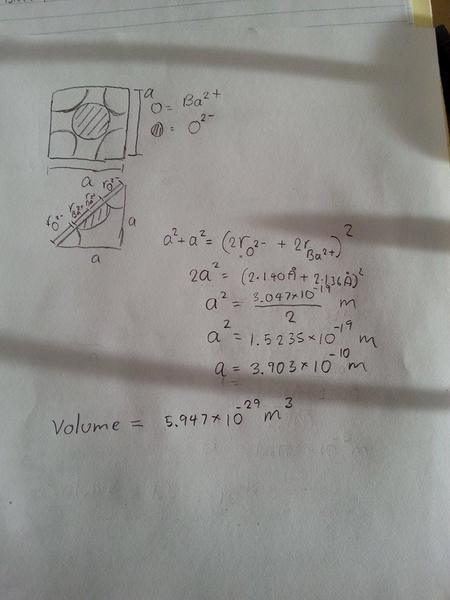 a
O = Ba²⁺
= O²⁻
a
r O²⁻
r Ba²⁺
r Ba²⁺
r O²⁻
a
a
a² + a² = (2r O²⁻ + 2r Ba²⁺)²
2a² = (2·1.40Å + 2·1.36Å)²
a² = 3.047×10⁻¹⁹ / 2 m
a² = 1.5235×10⁻¹⁹ m
a = 3.903×10⁻¹⁰ m
Volume = 5.947×10⁻²⁹ m³